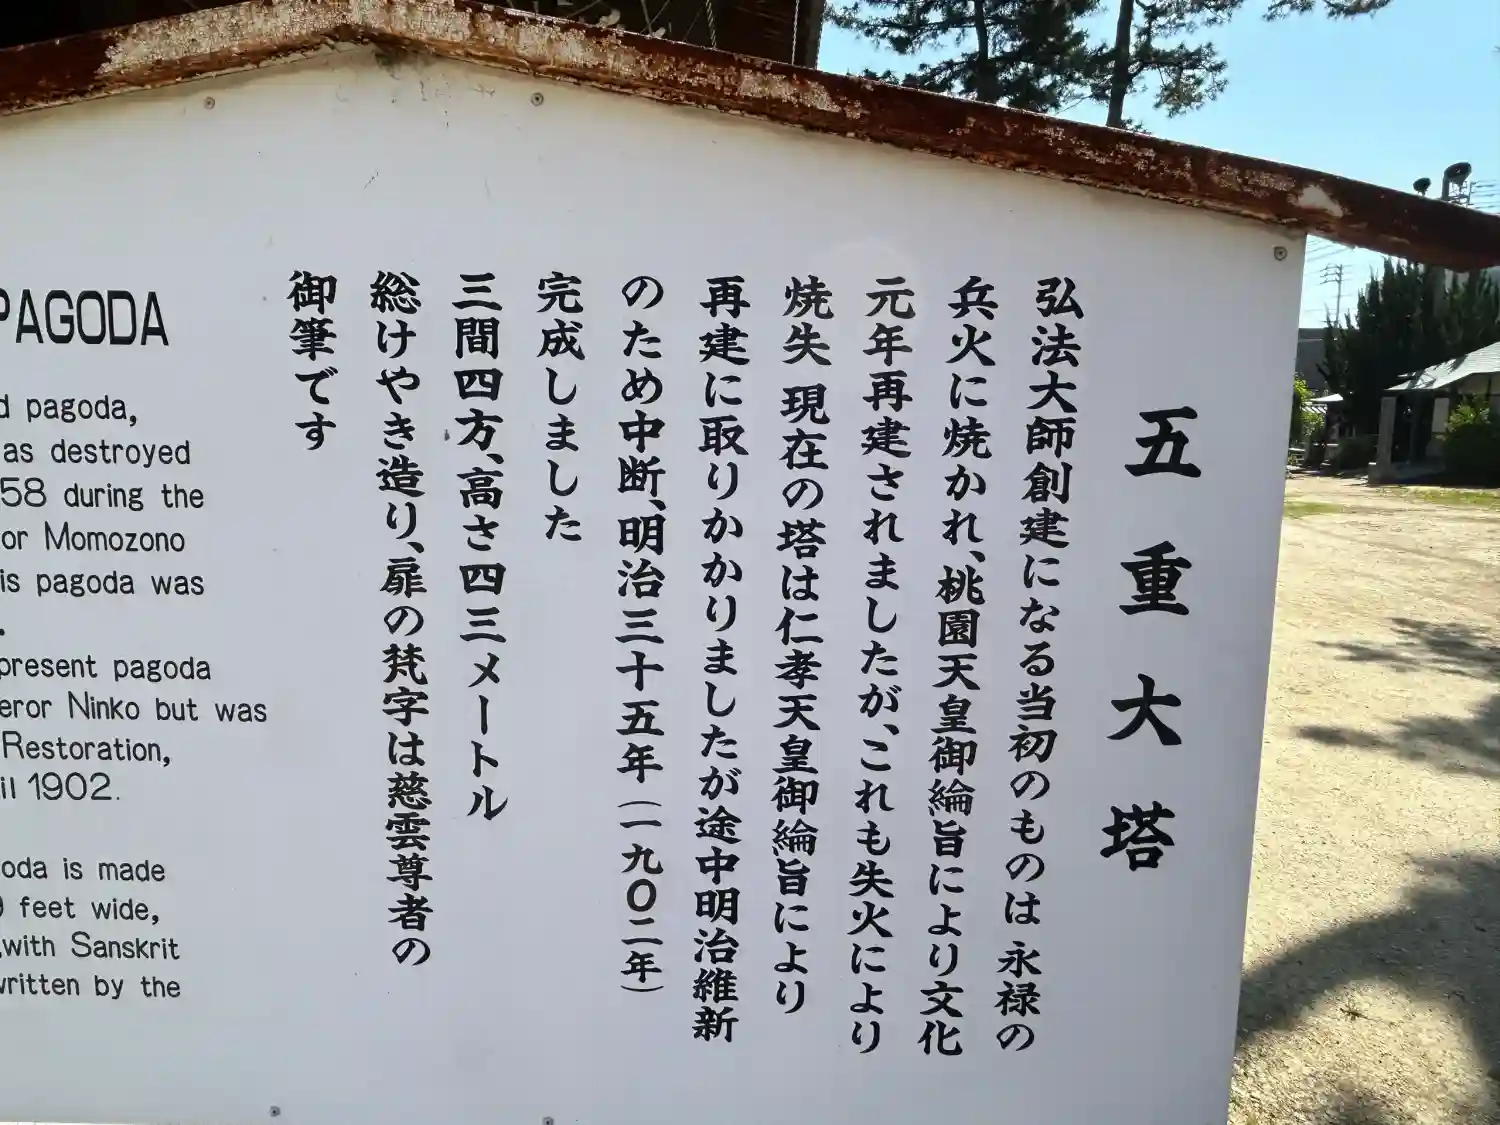 五重大塔
弘法大師創建になる当初のものは 永禄の
兵火に焼かれ、桃園天皇御綸旨により文化
元年再建されましたが、これも失火により
焼失 現在の塔は仁孝天皇御綸旨により
再建に取りかかりましたが途中明治維新
のため中断、明治三十五年(一九〇二年)
完成しました
三間四方、高さ四三メートル
総けやき造り、扉の梵字は慈雲尊者の
御筆です
PAGODA
d pagoda,
as destroyed
58 during the
or Momozono
is pagoda was
.
present pagoda
eror Ninko but was
Restoration,
il 1902.
oda is made
feet wide,
with Sanskrit
written by the